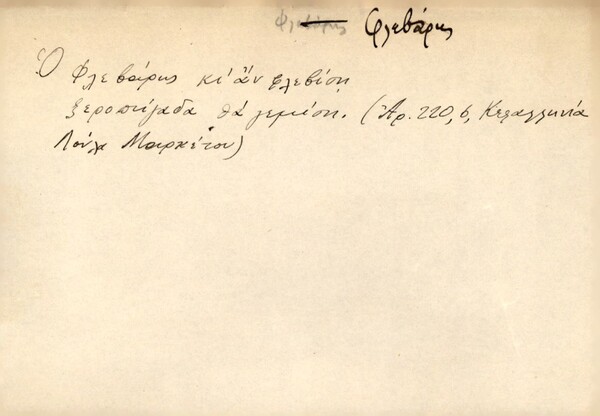 Φλεβάρης Φλεβάρης
Ὁ Φλεβάρης κι' ἂν φλεβίση
ξεροπήγαδα θὰ γεμίση. (Ἀρ. 220, 6, Κεφαλληνία
Λούλα Μαρκέτου)